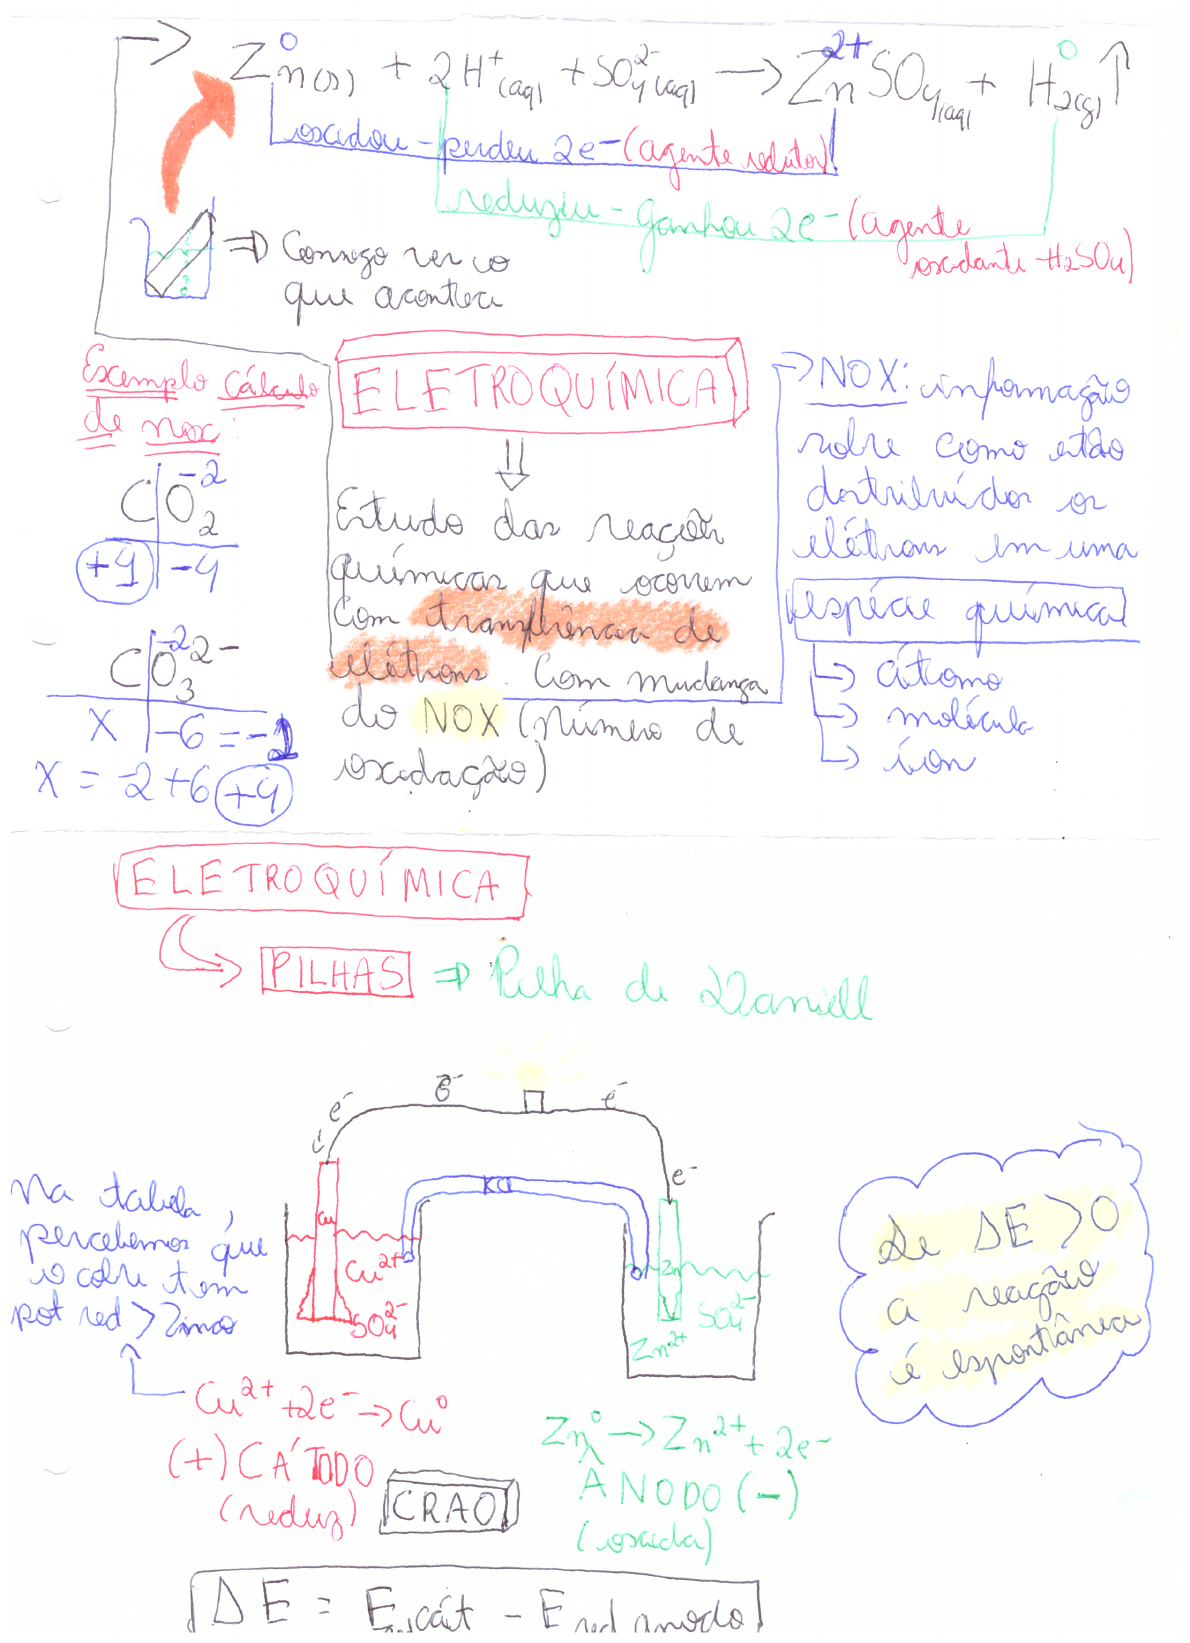 Zn⁰(s) + 2H⁺(aq) + SO₄²⁻(aq) → Zn²⁺SO₄(aq) + H₂⁰(g) ↑
oxidou - perdeu 2e⁻ (agente redutor)
reduziu - ganhou 2e⁻ (agente
oxidante - H₂SO₄)
⇒ Consigo ver o
que acontece
Exemplo cálculo
de nox:
CO₂⁻²
+4 | -4
CO₃⁻² ²⁻
X | -6 = -2
X = -2 +6 +4
ELETROQUÍMICA
Estudo das reações
químicas que ocorrem
com transferência de
elétrons. Com mudança
do NOX (número de
oxidação)
→ NOX: informação
sobre como estão
distribuídos os
elétrons em uma
espécie química
↳ átomo
↳ molécula
↳ íon
ELETROQUÍMICA
PILHAS ⇒ Pilha de Daniell
e⁻ e⁻ e⁻
e⁻
KCl
Cu
Cu²⁺
SO₄²⁻
Zn
SO₄²⁻
Zn²⁺
Na tabela,
percebemos que
o cobre tem
pot red > Zinco
Se ΔE > 0
a reação
é espontânea
Cu²⁺ + 2e⁻ → Cu⁰
(+) CÁTODO
(reduz)
CRAO
Zn⁰ → Zn²⁺ + 2e⁻
ÂNODO (-)
(oxida)
ΔE = E cát - E red anodo